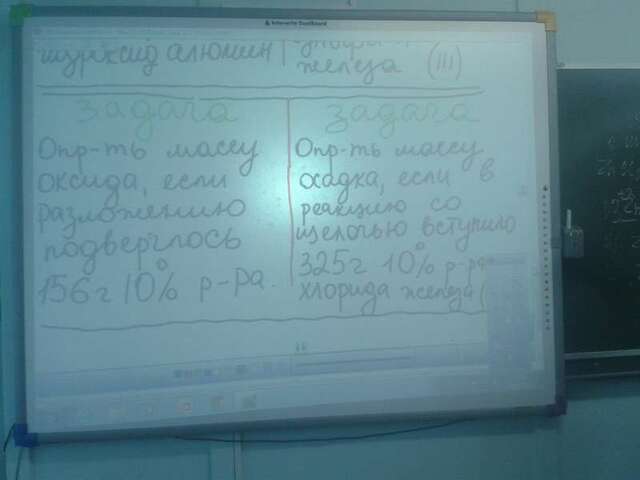 Interactive DualBoard
алюмин
железа (III)
задача
Опр-ть массу
оксида, если
разложению
подверглось
156г 10% р-ра.
задача
Опр-ть массу
осадка, если в
реакцию со
щелочью вступило
325г 10% р-ра
хлорида железа (